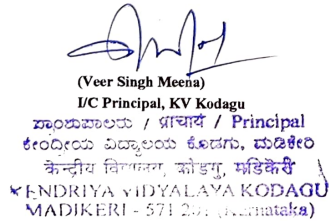 (Veer Singh Meena)
I/C Principal, KV Kodagu
ಪ್ರಾಂಶುಪಾಲರು / प्राचार्य / Principal
ಕೇಂದ್ರೀಯ ವಿದ್ಯಾಲಯ ಕೊಡಗು, ಮಡಿಕೇರಿ
केन्द्रीय विद्यालय, कोडगु, मडिकेरी
KENDRIYA VIDYALAYA KODAGU
MADIKERI - 571 201 (Karnataka)